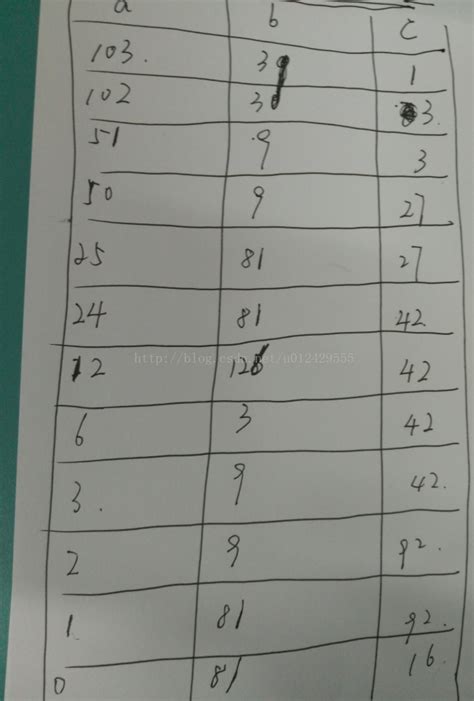 a b c
103. 3 1
102 3 3.
51 9 3
50 9 27
25 81 27
24 81 42
12 126 42
http://blog.csdn.net/u012429555
6 3 42
3. 9 42.
2 9 92.
1 81 92.
0 81 16